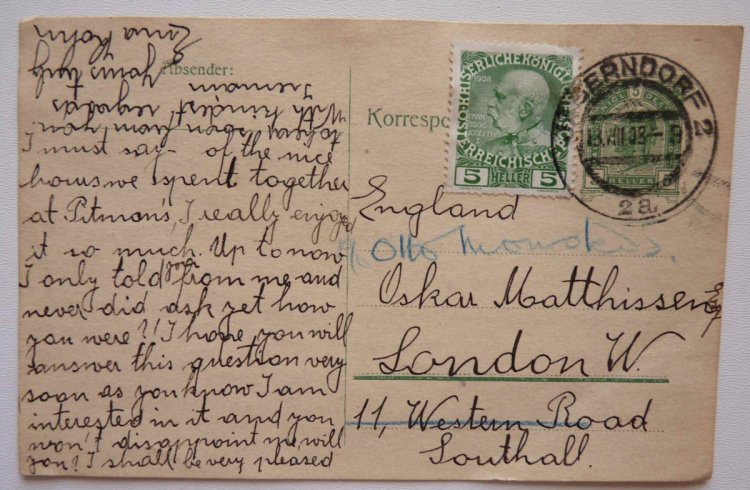 Absender:
I must say - of the nice
hours we spent together
at Pitman's, I really enjoyed
it so much. Up to now
I only told you from me and
never did ask yet how
you were?! I hope you will
answer this question very
soon as you know I am
interested in it and you
won't disappoint me, will
you? I shall be very pleased
to hear soon from you.
With kindest regards
Yours truly
Erna Kohn
Korrespo
KAISERLICHE KÖNIGL
1908
ERREICHISCHE
5 HELLER 5
ERNDORF 2
2a.
HELLER
England
Otto
Oskar Matthissen
Esq
London W.
11, Western Road
Southall.